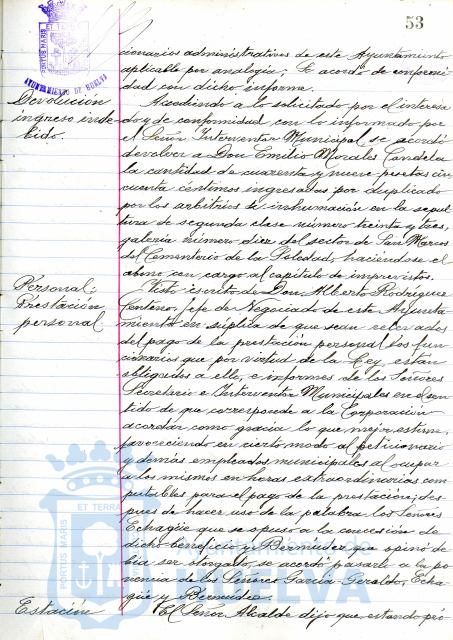 53
PORTUS MARIS ET TERRAE
AYUNTAMIENTO DE HUELVA
cionarios administrativos de este Ayuntamiento
aplicable por analogía; Se acordó de conformi-
dad con dicho informe.
Devolución
ingreso inde-
bido.
Accediendo a lo solicitado por el interesa
do y de conformidad con lo informado por
el Señor Interventor Municipal se acordó
devolver a Don Emilio Morales Candela
la cantidad de cuarenta y nueve pesetas cin
cuenta céntimos ingresados por duplicado
por los arbitrios de inhumación en la sepul
tura de segunda clase número treinta y tres,
galería número diez del sector de San Marcos
del Cementerio de la Soledad, haciéndose el
abono con cargo al capítulo de imprevistos.
Personal:
Prestación
personal.
Visto escrito de Don Alberto Rodríguez
Centeno, Jefe de Negociado de este Ayunta-
miento en súplica de que sean relevados
del pago de la prestación personal los fun
cionarios que por virtud de la Ley, están
obligados a ello, e informes de los Señores
Secretario e Interventor Municipales en el sen
tido de que corresponde a la Corporación
acordar como gracia lo que mejor estime,
favoreciendo en cierto modo al peticionario
y demás empleados municipales al ocupar
a los mismos en horas extraordinarias com
putables para el pago de la prestación; des
pues de hacer uso de la palabra los Señores
Echagüe que se opuso a la concesión de
dicho beneficio y Bermudez que opinó de
bia ser otorgado, se acordó pasarlo a la po
nencia de los Señores García-Geraldo, Echa
güe y Bermudez.
Estación
El Señor Alcalde dijo que estando pró
ET TERRA
PORTUS MARIS
Ayuntamiento de
HUELVA